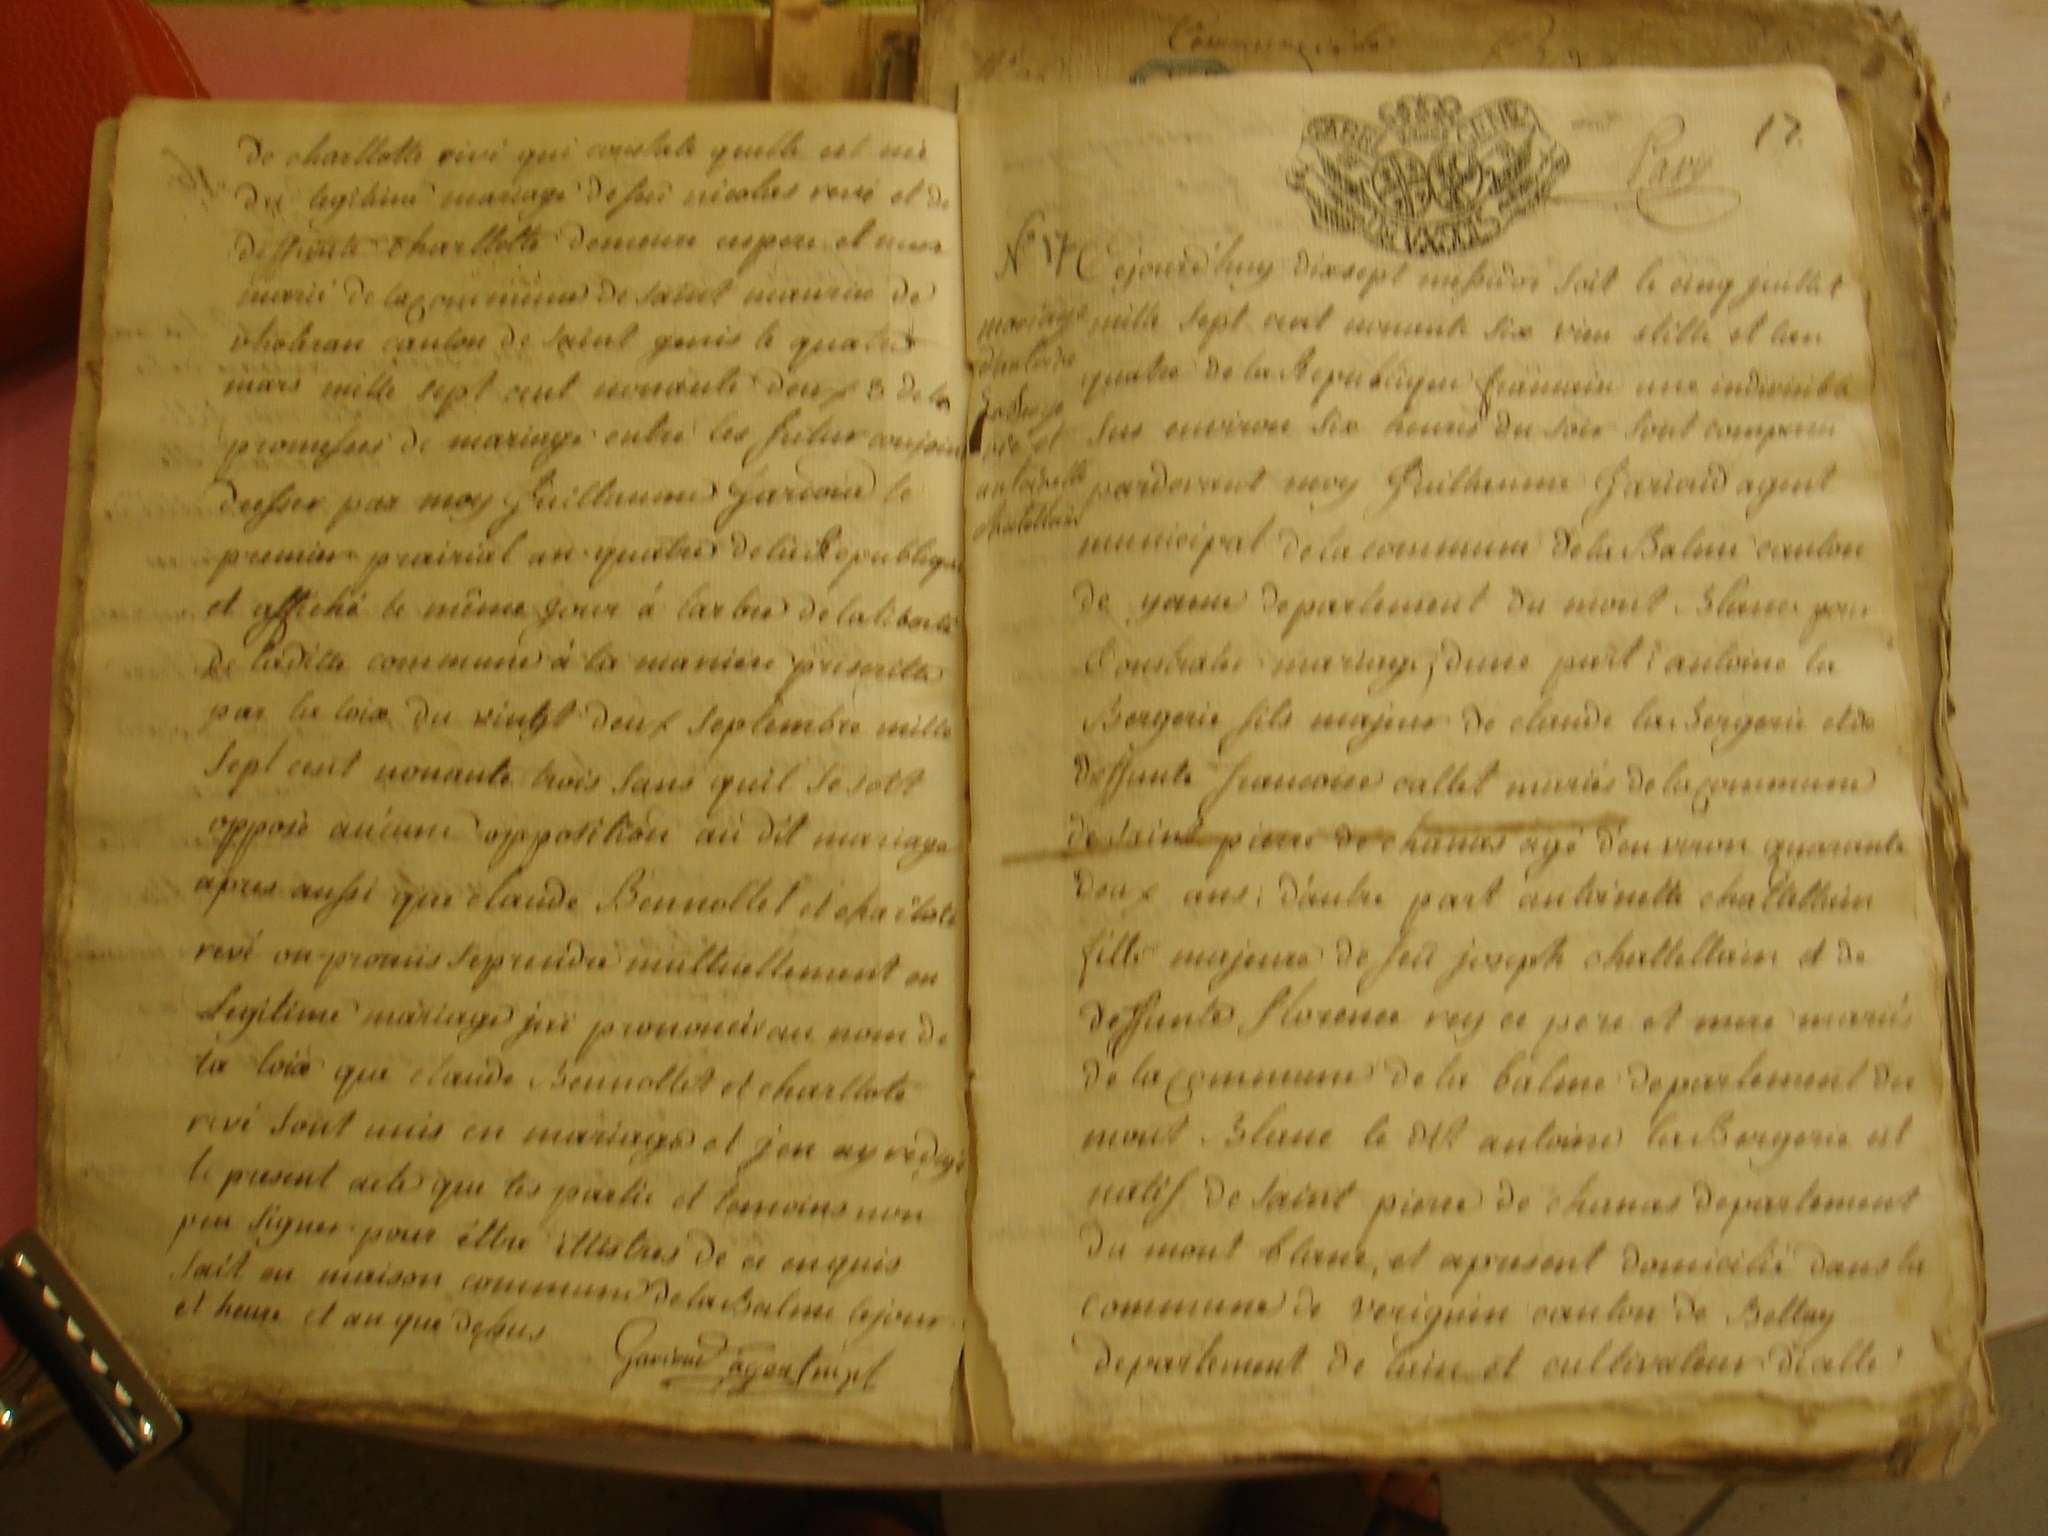 de charllotte revé qui constate quelle est née
du legitime mariage de feu nicolas revé et de
deffunte charllotte demeure ce pere et mere
marié de la commune de saint maurin de
canton de saint genis le quatre
mars mille sept cent nonante deux 3 de la
promesses de mariage entre les futur conjoin
dresser par moy Guillaume Garioud le
premier prairial an quatre de la Republique
et affiché le même jour á larbre de la liberté
de laditte commune á la maniere prescritte
par la loix du vingt deux septembre mille
sept cent nonante trois sans quil se soit
opposé aucune opposition au dit mariage
apres aussi que claude Bennollet et charllote
revé on promis se prendre muttuellement en
legitime mariage jai prononcé au nom de
la loix que claude Bennollet et charllote
revé sont unis en mariage et jen ay redigé
le present acte que les partie et temoins non
peu signer pour éttre illitres de ce enquis
fait en maison commune de la Balme le jour
et heure et an que desus
Garioud agent mpl
17.
Pavy
N° 17 Cejourd'huy dixsept messidor soit le cinq juillet
mariage
dantoine
La Berge
rie et
antoinette
chatellain
mille sept cent nonante six vieu stille et lan
quatre de la Republique francaise une indivisib
sur environ six heures du soir sont comparu
pardevant moy Guillaume Garioud agent
municipal de la commune de la Balme canton
de yenne departement du mont Blanc pour
Contracter mariage; dune part; antoine la
Bergerie fils majeur de claude la Bergerie et de
deffunte francoise callet mariés de la commune
de saint pierre de chanas agé denviron quarante
deux ans; dautre part antoinette chattellain
fille majeure de feu joseph chattellain et de
deffunte florence rey ce pere et mere mariés
de la commune de la balme departement du
mont Blanc le dit antoine la Bergerie est
natif de saint pierre de chanas departement
du mont blanc, et apresent domicilié dans la
commune de verignin canton de Belley
departement de lain et cultivateur dicelle